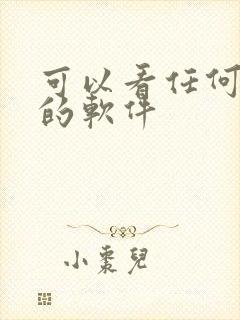 可以看任何
的軟件
小棗兒